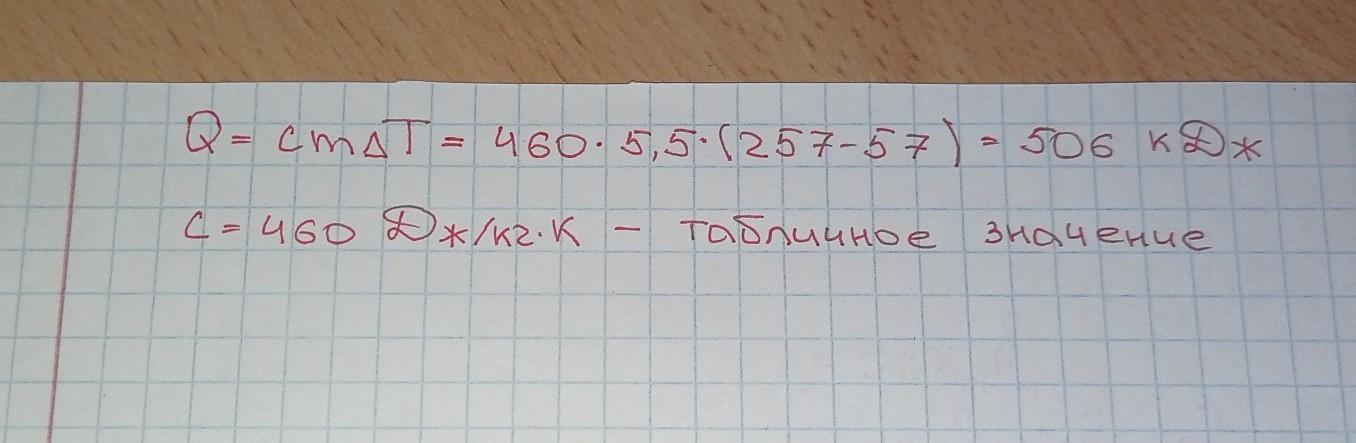 Q = cmΔT = 460·5,5·(257-57) = 506 кДж
C = 460 Дж/кг·К - табличное значение